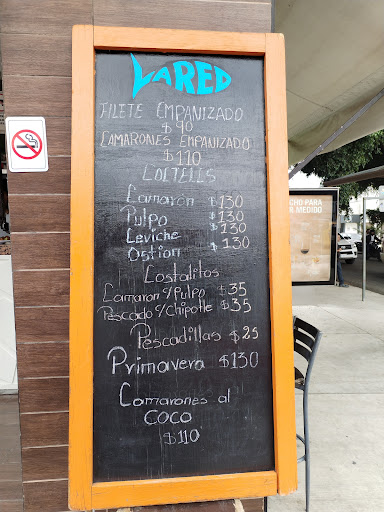 LARED
FILETE EMPANIZADO
$90
CAMARONES EMPANIZADO
$110
COCTELLS
Camarón $130
Pulpo $130
Ceviche $130
Ostion $130
Costalitos
Camaron y/Pulpo $35
Pescado y/Chipotle $35
Pescadillas $25
Primavera $130
Camarones al
COCO
$110
CHO PARA
R MEDIO